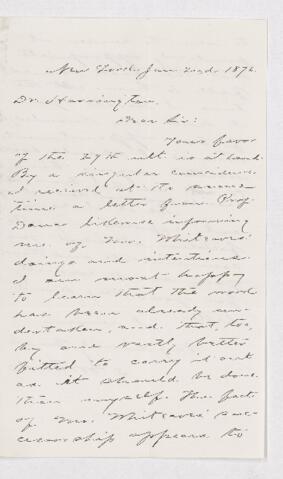 New York, Jan 2nd. 1876.
Dr. Harrington.
Dear Sir:
Yours favor
of the 27th ult. is at hand.
By a singular coincidence
I recieved at the same
time a letter from Prof
Dana likewise informing
me of Mr.
doings and intentions.
I am most happy
to learn that the work
has been already un-
dertaken, and that, too,
by one vastly better
fitted to carry it out
as it should be done
than myself. The fact
of Mr. suc-
cessorship appears to